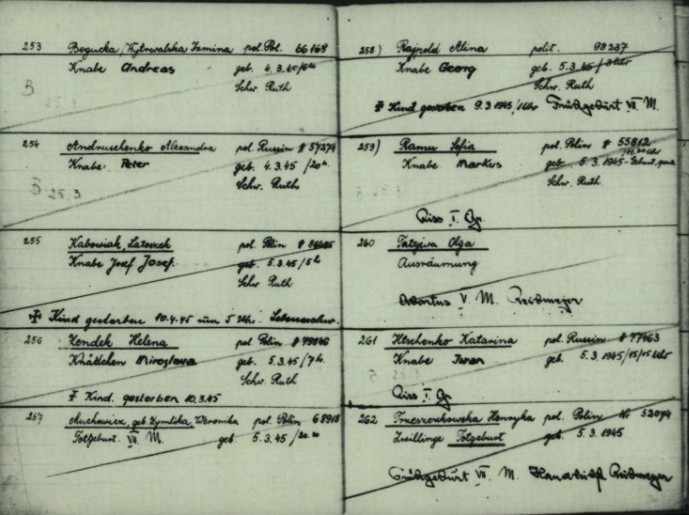 253 Bogucka / Wytrwalska Irmina pol. Pol. 66168
Knabe Andreas geb. 4.3.45/
Schw. Ruth
B
254 Andruschenko Alexandra pol. Russin # 57274
Knabe Peter geb. 4.3.45 /20 h.
Schw. Ruth
B 25.3.
255 Kabowiak, pol. Polin #
Knabe Josef Josef. geb. 5.3.45 /5 h
Schw. Ruth
Kind gestorben 10.4.45 um 5 Uhr.
256 Kendek Helena pol. Polin #
Mädchen Miroslawa geb. 5.3.45 /7 h.
Schw. Ruth
Kind gestorben 10.3.45
257 Muchowicz, geb. Weronika pol. Polin 68918
Totgeburt VII M. geb. 5.3.45 /20.20
258) Rajpold Alina polit. 93237
Knabe Georg geb. 5.3.45 / Uhr
Schw. Ruth
Kind gestorben 9.3.1945 / Uhr Frühgeburt VII M.
259) Ramu Sofia pol. Polin # 55812
Knabe Markus geb. 5.3.1945
Schw. Ruth
Riss I. Gr.
260 Olga
Ausräumung
Abortus V. M.
261 Katarina pol. Russin # 77463
Knabe Iwan geb. 5.3.1945/15/15 Uhr
Riss I. Gr.
262 Henryka pol. Polin Nr 52094
Zwillinge Totgeburt geb. 5.3.1945
Frühgeburt VII. M.